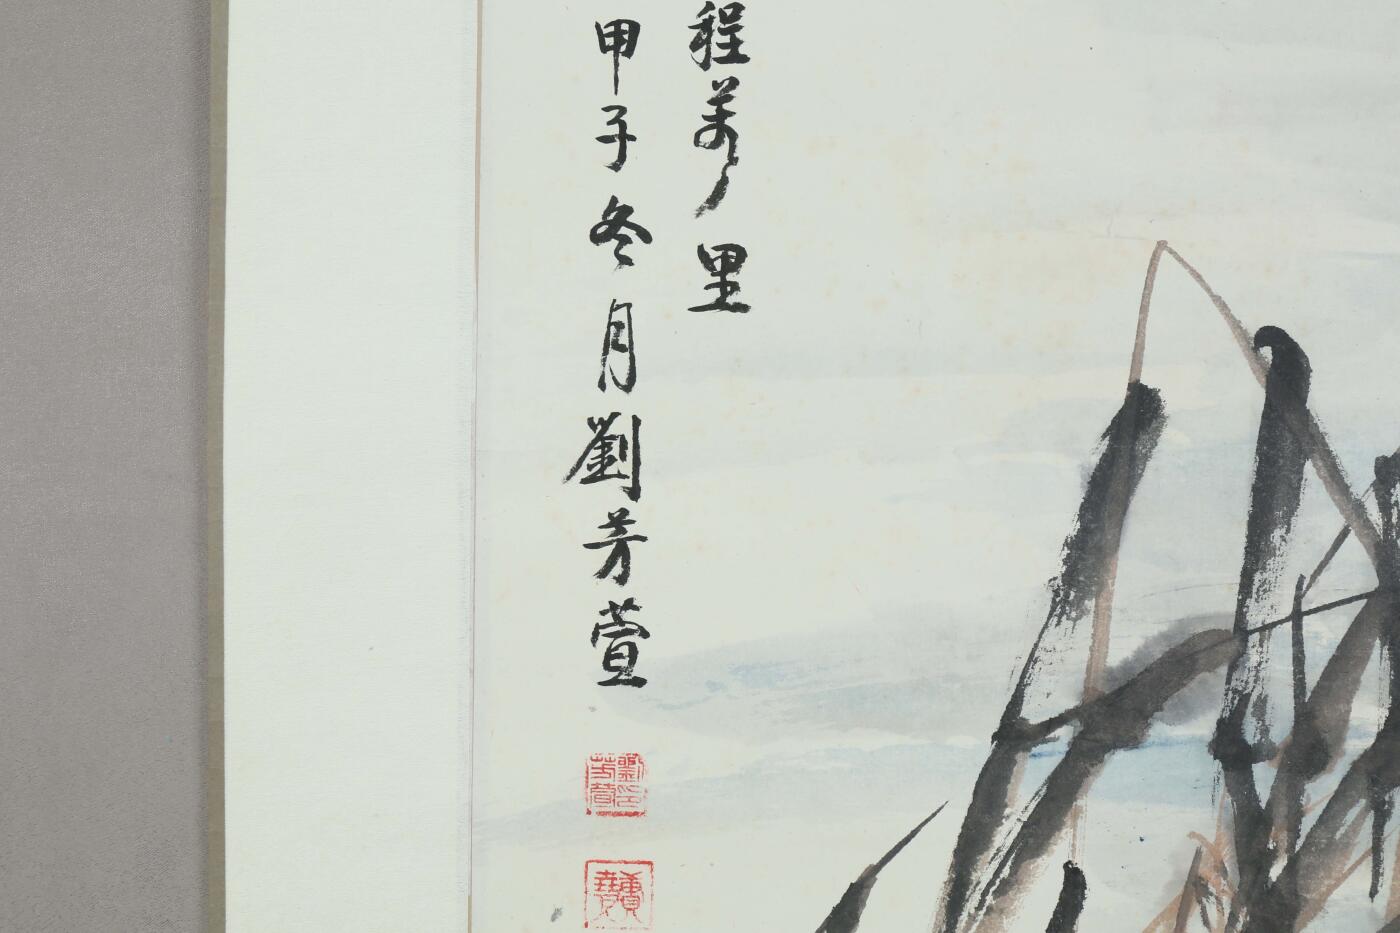 程萬里
甲子冬月劉芳萱
劉芳萱印